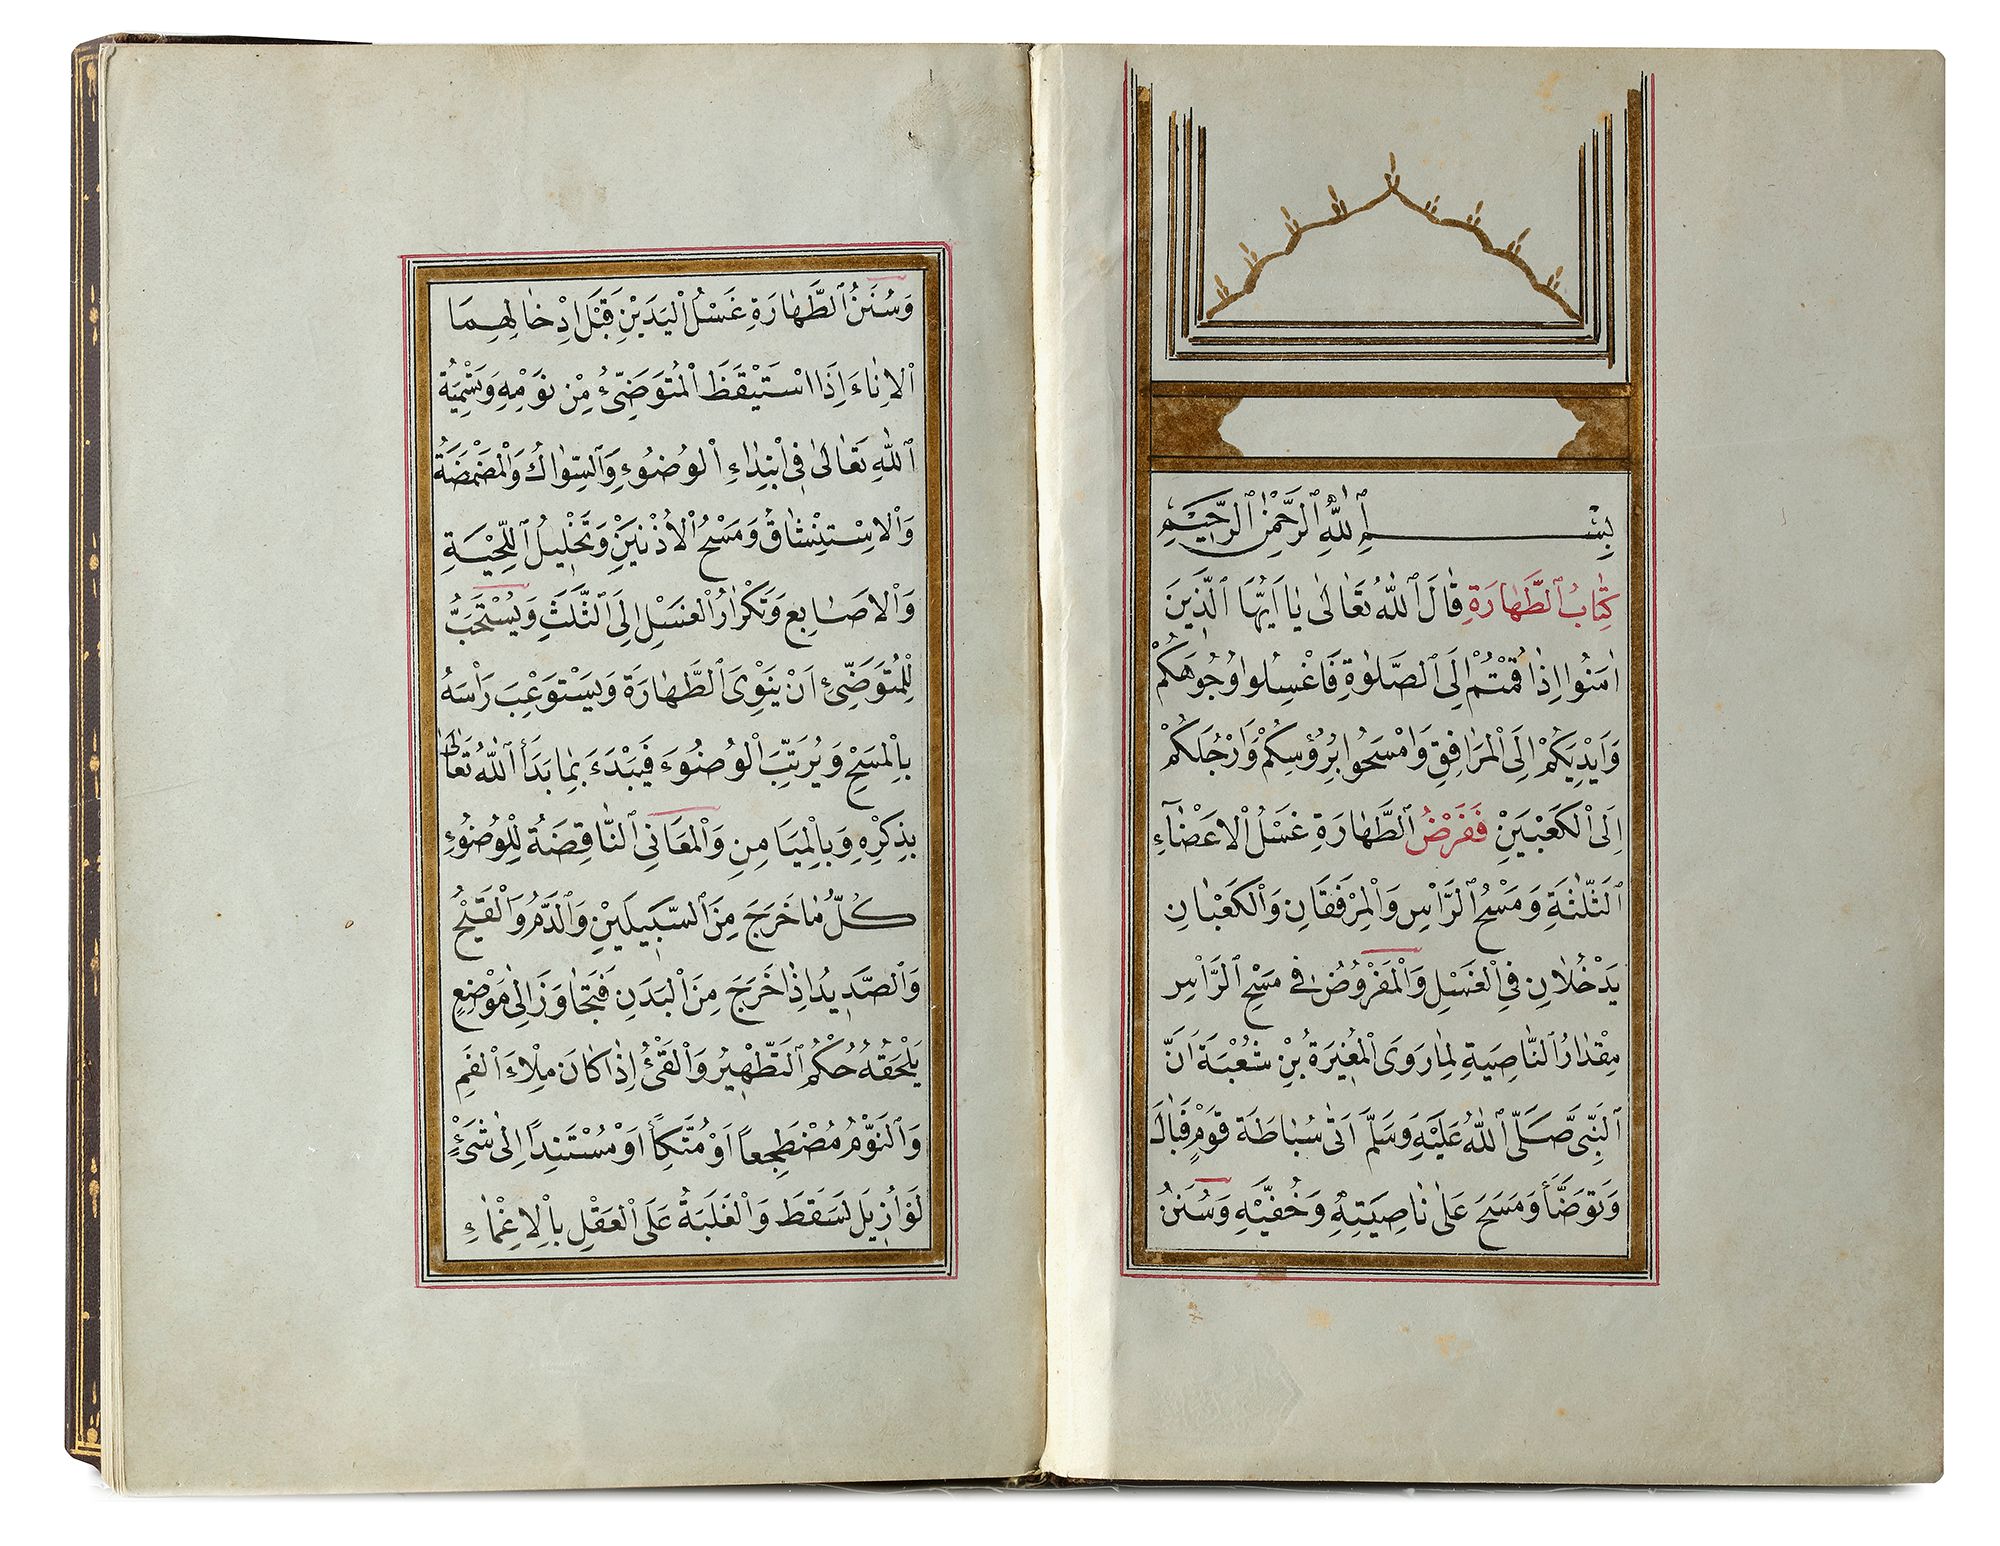 بِسْمِ اللّٰهِ الرَّحْمٰنِ الرَّحِيمِ
كِتَابُ الطَّهَارَةِ قَالَ اللّٰهُ تَعَالٰى يَا اَيُّهَا الَّذِينَ
اٰمَنُوا اِذَا قُمْتُمْ اِلَى الصَّلٰوةِ فَاغْسِلُوا وُجُوهَكُمْ
وَاَيْدِيَكُمْ اِلَى الْمَرَافِقِ وَامْسَحُوا بِرُؤُسِكُمْ وَاَرْجُلَكُمْ
اِلَى الْكَعْبَيْنِ فَفَرْضُ الطَّهَارَةِ غَسْلُ الْاَعْضَاءِ
الثَّلٰثَةِ وَمَسْحُ الرَّاْسِ وَالْمِرْفَقَانِ وَالْكَعْبَانِ
يَدْخُلَانِ فِي الْغَسْلِ وَالْمَفْرُوضُ فِي مَسْحِ الرَّاْسِ
مِقْدَارُ النَّاصِيَةِ لِمَا رَوَى الْمُغِيرَةُ بْنُ شُعْبَةَ اَنَّ
النَّبِيَّ صَلَّى اللّٰهُ عَلَيْهِ وَسَلَّمَ اَتٰى سُبَاطَةَ قَوْمٍ فَبَالَ
وَتَوَضَّأَ وَمَسَحَ عَلٰى نَاصِيَتِهِ وَخُفَّيْهِ وَسُنَنُ
وَسُنَنُ الطَّهَارَةِ غَسْلُ الْيَدَيْنِ قَبْلَ اِدْخَالِهِمَا
الْاِنَاءَ اِذَا اسْتَيْقَظَ الْمُتَوَضِّئُ مِنْ نَوْمِهِ وَتَسْمِيَةُ
اللّٰهِ تَعَالٰى فِي ابْتِدَاءِ الْوُضُوءِ وَالسِّوَاكُ وَالْمَضْمَضَةُ
وَالْاِسْتِنْشَاقُ وَمَسْحُ الْاُذُنَيْنِ وَتَخْلِيلُ اللِّحْيَةِ
وَالْاَصَابِعِ وَتَكْرَارُ الْغَسْلِ اِلَى الثَّلٰثِ وَيُسْتَحَبُّ
لِلْمُتَوَضِّئِ اَنْ يَنْوِيَ الطَّهَارَةَ وَيَسْتَوْعِبَ رَاْسَهُ
بِالْمَسْحِ وَيُرَتِّبَ الْوُضُوءَ فَيَبْدَءَ بِمَا بَدَأَ اللّٰهُ تَعَالٰى
بِذِكْرِهِ وَبِالْمَيَامِنِ وَالْمَعَانِي النَّاقِضَةُ لِلْوُضُوءِ
كُلُّ مَا خَرَجَ مِنَ السَّبِيلَيْنِ وَالدَّمُ وَالْقَيْحُ
وَالصَّدِيدُ اِذَا خَرَجَ مِنَ الْبَدَنِ فَتَجَاوَزَ اِلٰى مَوْضِعٍ
يَلْحَقُهُ حُكْمُ التَّطْهِيرِ وَالْقَيْءُ اِذَا كَانَ مِلْاَءَ الْفَمِ
وَالنَّوْمُ مُضْطَجِعًا اَوْ مُتَّكِأً اَوْ مُسْتَنِدًا اِلٰى شَيْءٍ
لَوْ اُزِيلَ لَسَقَطَ وَالْغَلَبَةُ عَلَى الْعَقْلِ بِالْاِغْمَاءِ